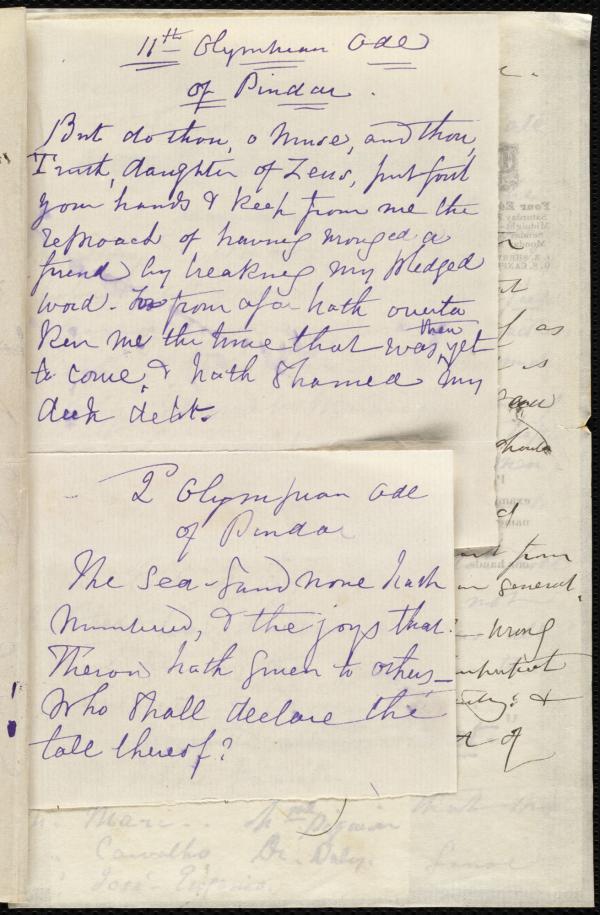 11th Olympian Ode
of Pindar.
But do thou, o Muse, and thou,
Truth, daughter of Zeus, put forth
your hands & keep from me the
reproach of having wronged a
friend by breaking my pledged
word. For from afar hath overta
ken me the time that was then yet
to come, & hath shamed my
deep debt.
2d Olympian Ode
of Pindar
The sea-sand none hath
numbered, & the joys that
Theron hath given to others—
Who shall declare the
tale thereof?
as
should
from
in general,
wrong
&
of
Marc..
Carvalho Dr. Daly.
José